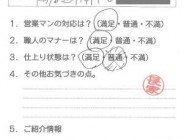 1. 営業マンの対応は?（満足・普通・不満）
2. 職人のマナーは?（満足・普通・不満）
3. 仕上り状態は?（満足・普通・不満）
4. その他お気づきの点。
5. ご紹介情報